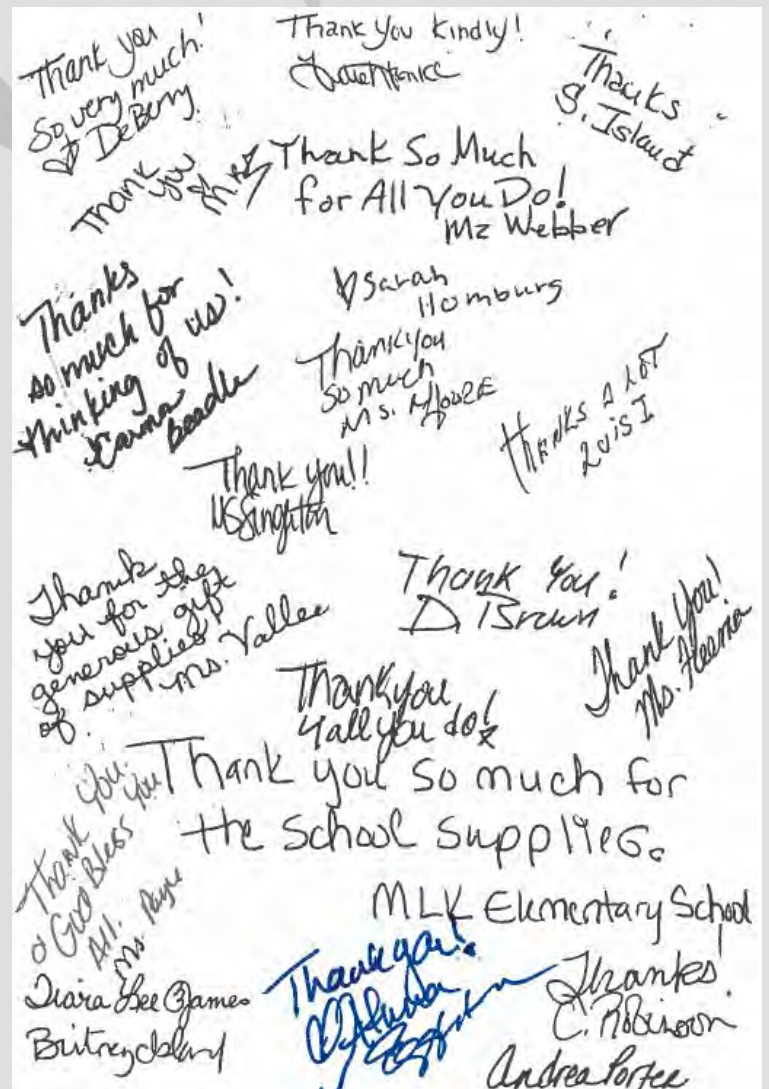 Thank you
so very much!
DeBerry
Thank You Kindly!
Thanks
S. Island
Thank
you
Thank So Much
for All You Do!
Mz Webber
Thanks
so much for
thinking of us!
Carma
Beadle
Sarah
Homburg
Thankyou
so much
Ms. Moore
thanks a lot
Luis I
Thank you!!
MSSingleton
Thank
you for the
generous gift
of supplies.
Ms. Vallee
Thank You!
D. Brown
Thank You!
Ms.
Thankyou
4all you do!
Thank you.
God Bless You
All.
Ms. Payne
Thank you so much for
the School Supplies.
MLK Elementary School
Tiara Lee James
Britney Island
Thank you!
Thanks!
C. Robinson
Andrea Portee